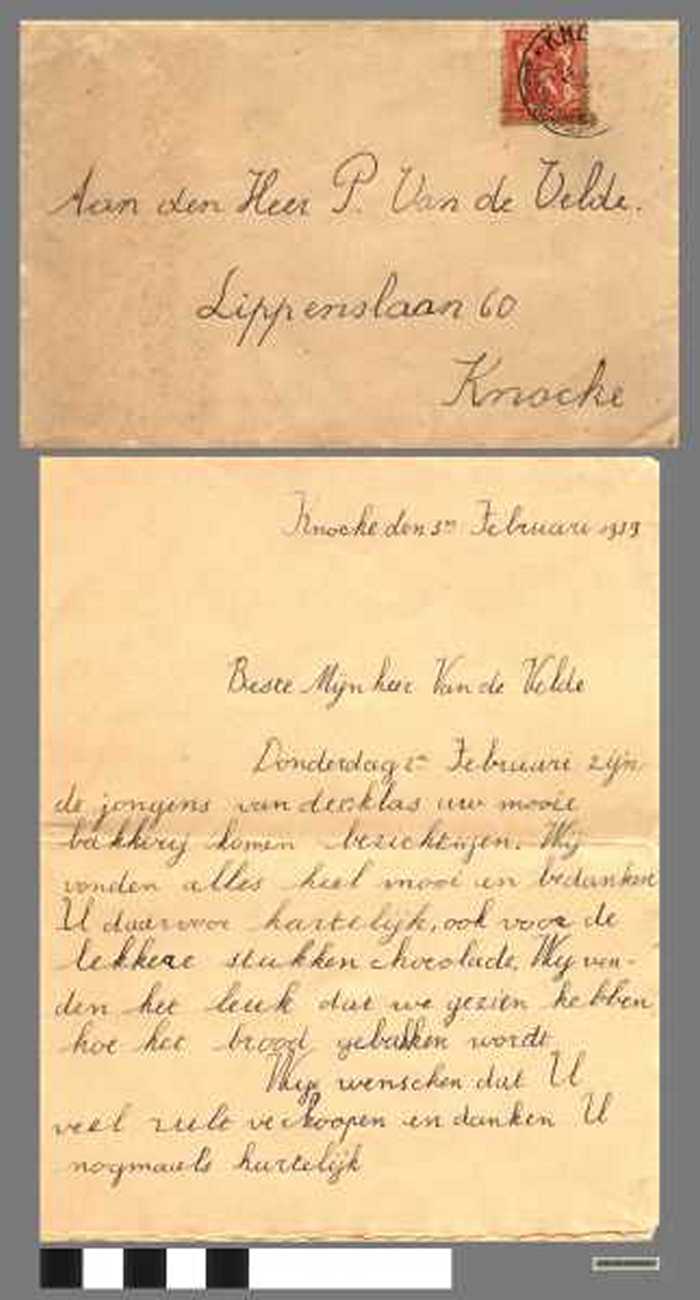 KNO
Aan den Heer P. Van de Velde.
Lippenslaan 60
Knocke
Knocke den 3en Februari 1939
Beste Mijnheer Van de Velde
Donderdag 2en Februari zijn
de jongens van de klas uw mooie
bakkerij komen bezichtigen. Wij
vonden alles heel mooi en bedanken
U daarvoor hartelijk, ook voor de
lekkere stukken chocolade. Wij von-
den het leuk dat we gezien hebben
hoe het brood gebakken wordt
Wij wenschen dat U
veel zult verkoopen en danken U
nogmaals hartelijk